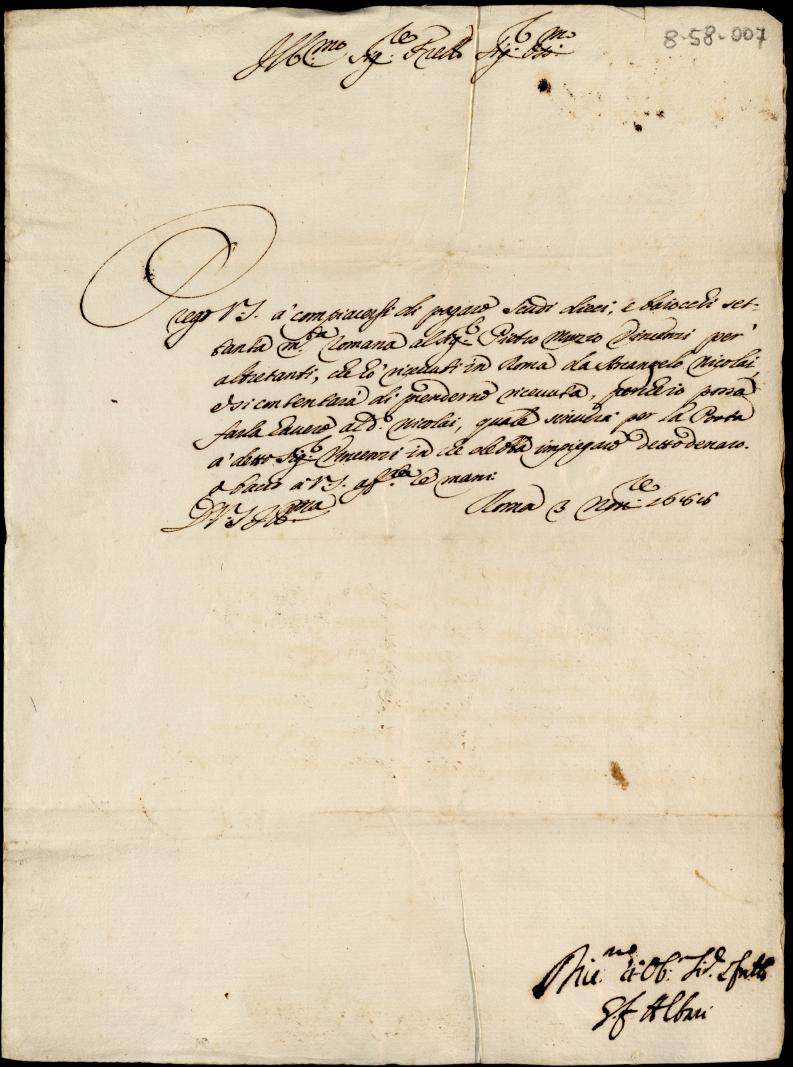 8-58-007
Ill:mo Sig:re Sig:
Prego V.S. à compiacersi di pagare scudi dieci, e baiocchi set-
tanta m:ta Romana al Sig:r Pietro Muzio Vincenzi per
altretanti, che hò ricevuti in Roma da Arcangelo Nicolai,
e si contentarà di prenderne ricevuta, perche io possa
farla havere al d:o Nicolai, quale scriverà per la Posta
a detto Sig:r Vincenzi in che debba impiegare detto denaro.
e bacio à V.S. aff:te le mani.
D V.S. Ill:ma
Roma 3 Nov:re 1666
Div:mo et Ob:
Albani